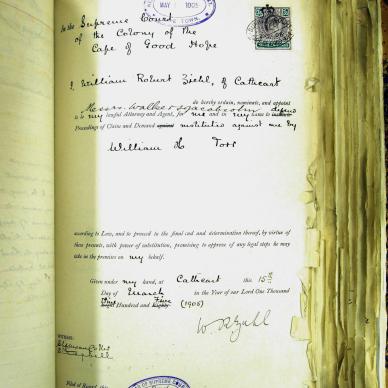 MAY 1905
TOWN.
In the Supreme Court
of the Colony of the
Cape of Good Hope
I, William Robert Ziehl, of Cathcart
do hereby ordain, nominate, and appoint
Messrs Walker & Jacobsohn
to be my lawful Attorney and Agent, for me and in my name to defend
Proceedings of Claim and Demand against instituted against me by
William H Torr
according to Law, and to proceed to the final end and determination thereof, by virtue of
these presents, with power of substitution, promising to approve of any legal steps he may
take in the premises on my behalf.
Given under my hand, at Cathcart this 15th
Day of March in the Year of our Lord One Thousand
Hundred and Eighty Five (1905)
W. R. Ziehl
WITNESS:
Filed of Record, this
OF SUPREME COURT